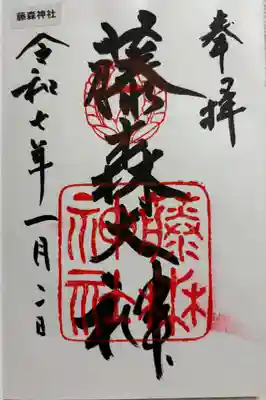 藤森神社
奉拝
藤森大神
藤森神社
令和七年一月二日